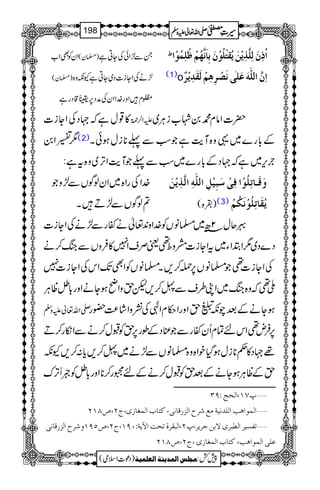 سیرتِ مصطفیٰ صلی اللہ تعالیٰ علیہ وسلم
198
اُذِنَ لِلَّذِیْنَ یُقٰتَلُوْنَ بِاَنَّهُمْ ظُلِمُوْا ؕ
وَ اِنَّ اللّٰهَ عَلٰى نَصْرِهِمْ لَقَدِیْرُۙ ○ (1)
جن سے لڑائی کی جاتی ہے (مسلمان) ان کو بھی اب
لڑنے کی اجازت دی جاتی ہے کیونکہ وہ (مسلمان)
مظلوم ہیں اور خدا ان کی مدد پر یقیناً قادر ہے
حضرت امام محمد بن شہاب زہری علیہ الرحمۃ کا قول ہے کہ جہاد کی اجازت
کے بارے میں یہی وہ آیت ہے جو سب سے پہلے نازل ہوئی۔ (2) مگر تفسیر ابن
جریر میں ہے کہ جہاد کے بارے میں سب سے پہلے جو آیت اتری وہ یہ ہے:
وَ قَاتِلُوْا فِیْ سَبِیْلِ اللّٰهِ الَّذِیْنَ
یُقَاتِلُوْنَكُمْ (3) (بقرہ)
خدا کی راہ میں ان لوگوں سے لڑو جو
تم لوگوں سے لڑتے ہیں۔
بہرحال ۲ھ میں مسلمانوں کو خداوند تعالیٰ نے کفار سے لڑنے کی اجازت
دے دی مگر ابتداء میں یہ اجازت مشروط تھی یعنی صرف انہیں کافروں سے جنگ کرنے
کی اجازت تھی جو مسلمانوں پر حملہ کریں۔ مسلمانوں کو ابھی تک اس کی اجازت نہیں
ملی تھی کہ وہ جنگ میں اپنی طرف سے پہل کریں لیکن حق واضح ہو جانے اور باطل ظاہر
ہو جانے کے بعد چونکہ تبلیغ حق اور احکام الٰہی کی نشر و اشاعت حضور صلی اللہ تعالیٰ علیہ وسلم
پر فرض تھی اس لئے تمام اُن کفار سے جو عناد کے طور پر حق کو قبول کرنے سے انکار کرتے
تھے جہاد کا حکم نازل ہو گیا خواہ وہ مسلمانوں سے لڑنے میں پہل کریں یا نہ کریں کیونکہ
حق کے ظاہر ہو جانے کے بعد حق کو قبول کرنے کے لئے مجبور کرنا اور باطل کو جبراً ترک
1.....پ۱۷،الحج:۳۹
2.....المواهب اللدنية مع شرح الزرقانی، کتاب المغازی، ج۲،ص۲۱۸
3.....تفسیر الطبری لابن جریر،پ۲،البقرة تحت الآیة:۱۹۰،ج۲،ص۱۹۵ وشرح الزرقانی
علی المواهب، کتاب المغازی، ج۲،ص۲۱۸
پیش کش: مجلس المدینة العلمیة (دعوتِ اسلامی)